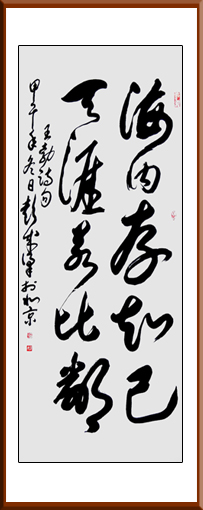 海内存知己
天涯若比鄰
王勃詩句
甲午年冬日彭成軍於北京